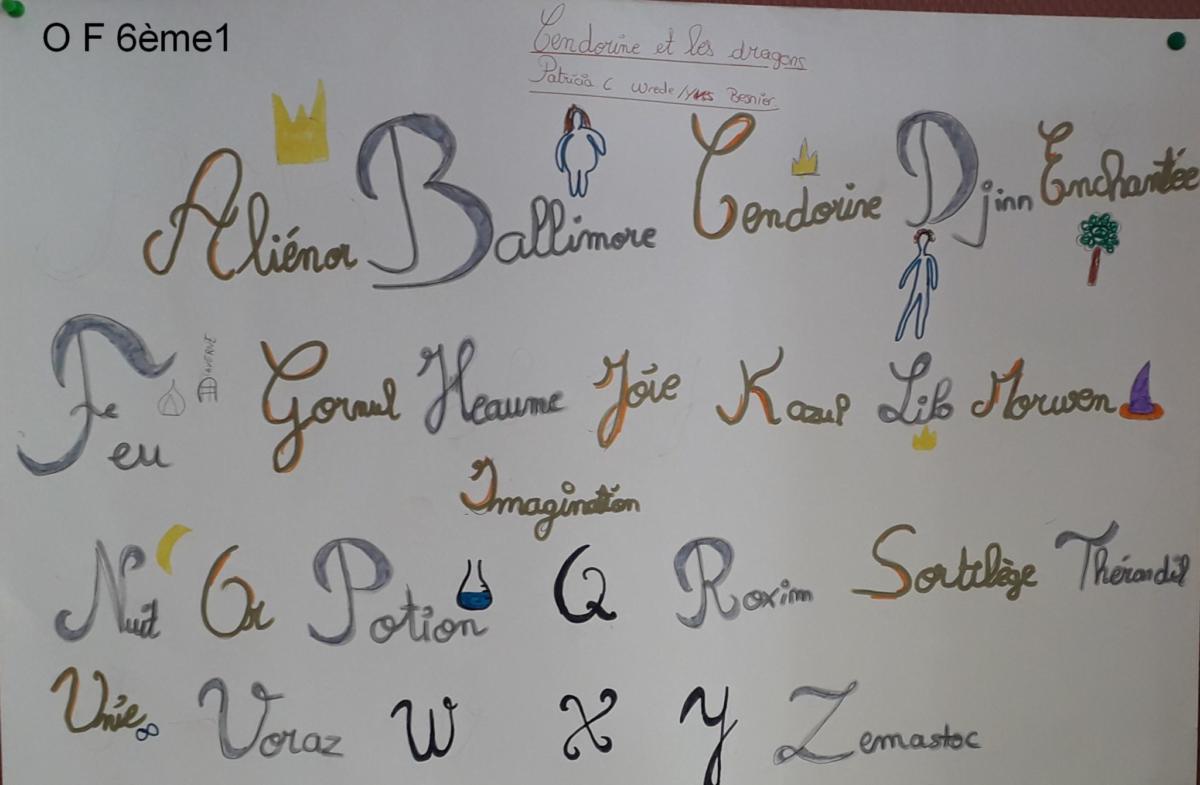 O F 6ème1
Cendorine et les dragons
Patricia C Wrede/Yves Besnier
Aliénor Ballimore Cendorine Djinn Enchantée
Feu Gornul Heaume Joie Kazul Lilo Morwen
Imagination
Nuit Or Potion Q Roxim Sortilège Thérandil
Unie Voraz W X Y Zemastoc